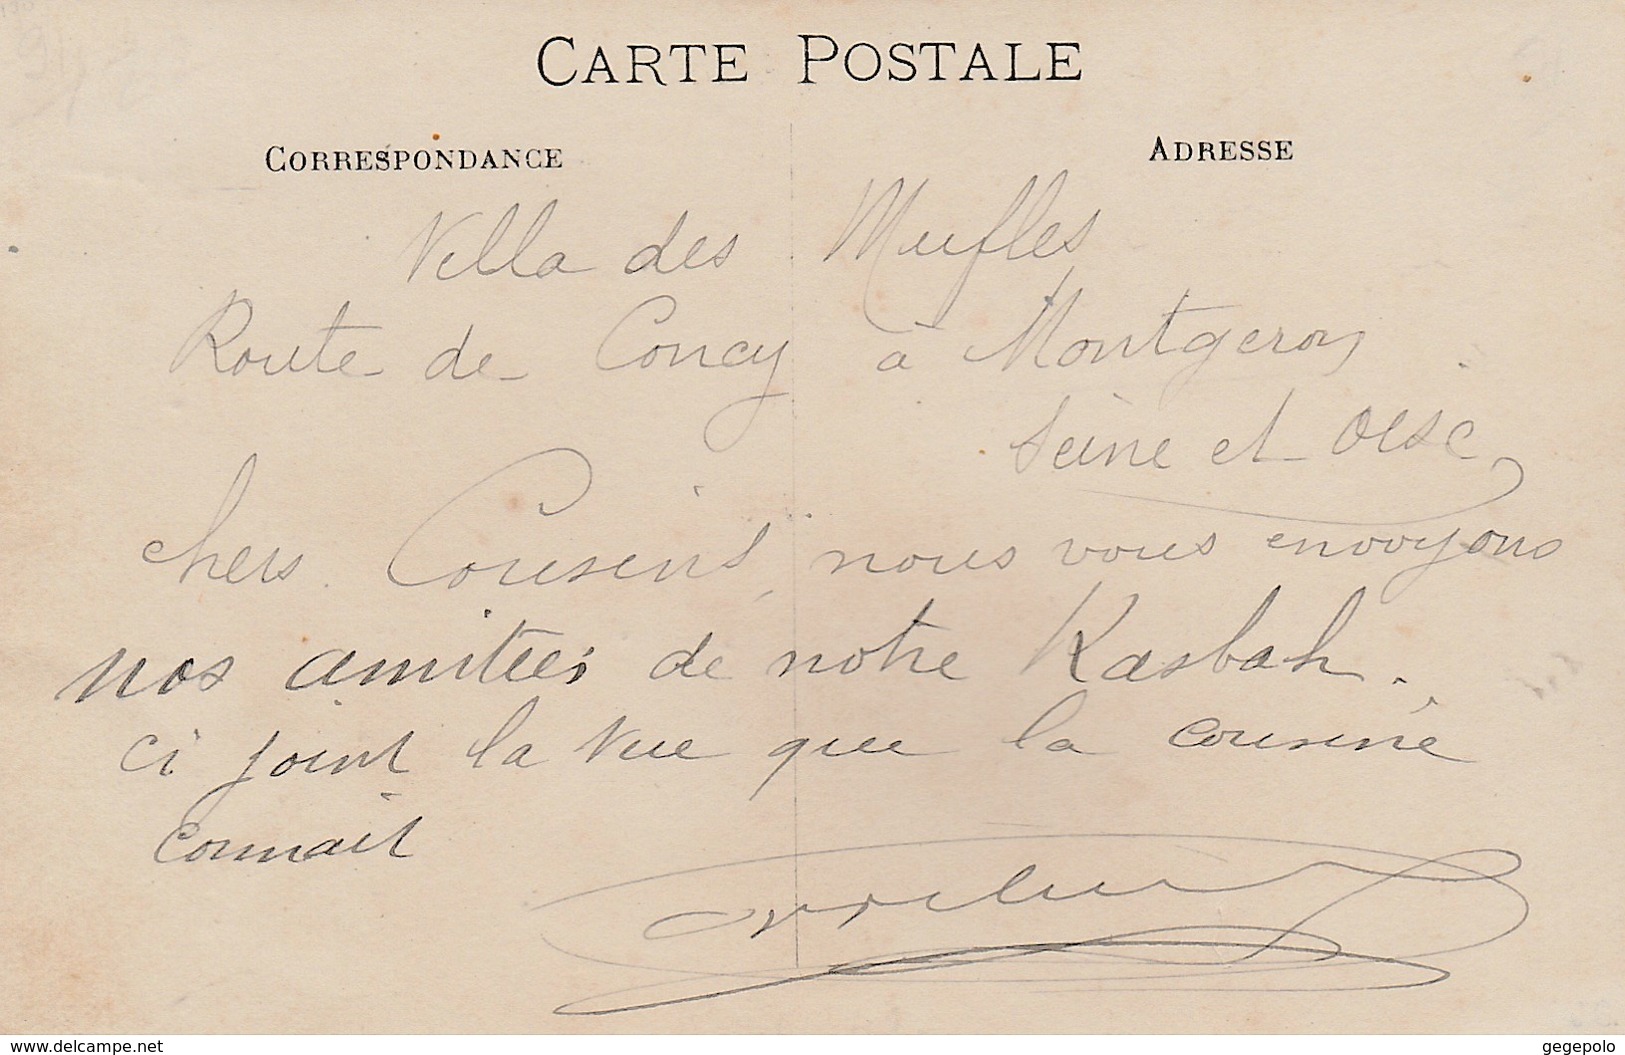 CARTE POSTALE
CORRESPONDANCE
ADRESSE
Villa des Mufles
Route de Concy à Montgeron
Seine et Oise
chers Cousins, nous vous envoyons
nos amitiés de notre Kasbah.
ci joint la vue que la cousine
connait
www.delcampe.net
gegepolo